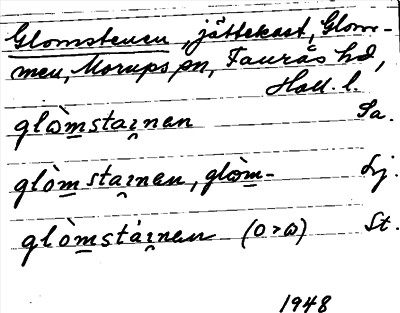 Glomstenen, jättekast, Glom-
men, Morups sn, Faurås hd,
Hall. l.
glὼm̲sta̯ı̯nen Sa.
glòm̲sta̯ı̯nen, glὼm̲- Lj.
glòm̲stàı̯nen (o > ω) St.
1948